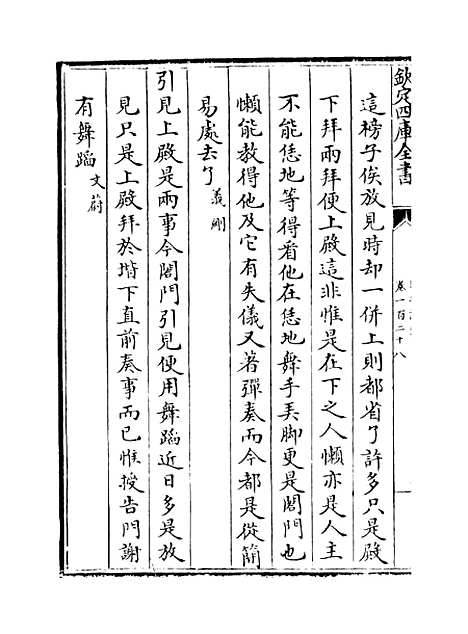 欽定四庫全書
卷一百二十八
這榜子俟放見時却一併上則都省了許多只是殿
下拜兩拜便上殿這非惟是在下之人懶亦是人主
不能恁地等得看他在恁地舞手弄脚更是閤門也
懶能教得他及它有失儀又著彈奏而今都是從簡
易處去了義剛
引見上殿是兩事今閤門引見便用舞蹈近日多是放
見只是上殿拜於堦下直前奏事而已惟授告門謝
有舞蹈文蔚